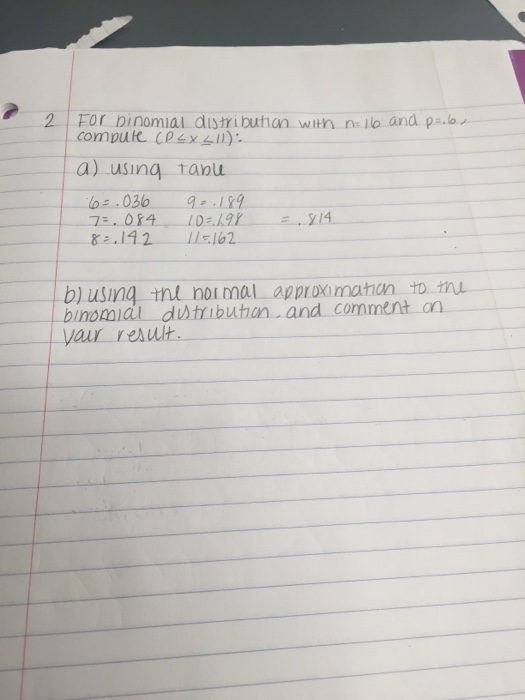 2 For binomial distribution with n=16 and p=.6,
compute (P≤x≤11):
a) using table
6=.036 9=.189
7=.084 10=.198 =.814
8=.142 11=.162
b) using the normal approximation to the
binomial distribution. and comment on
your result.